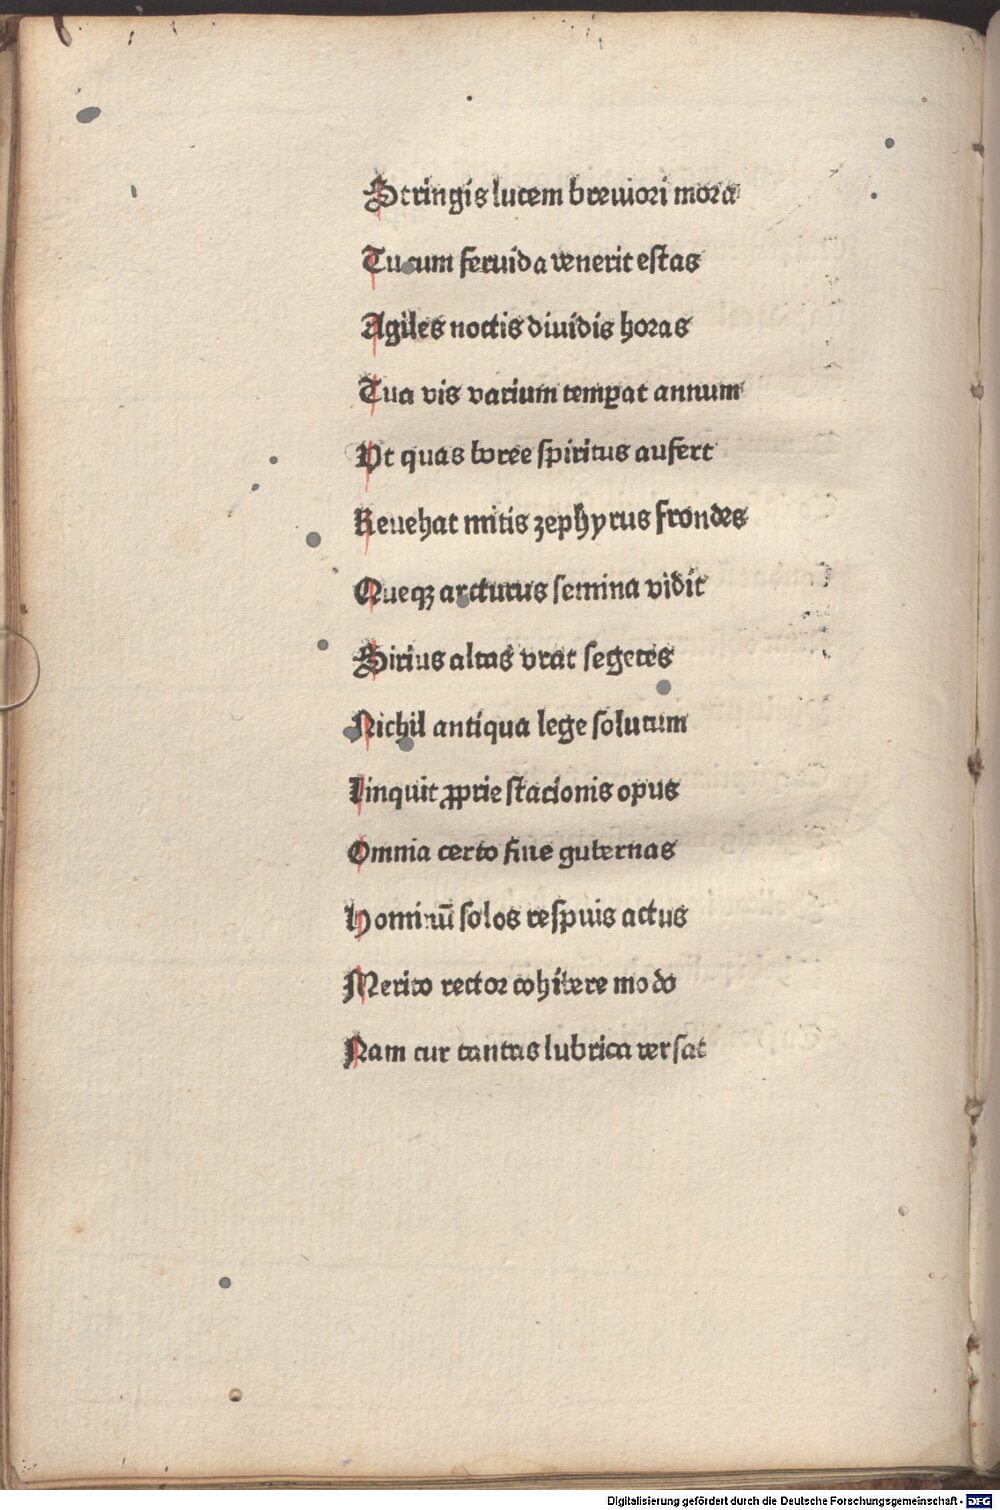 Stringis lucem breuiori mora
Tu cum feruida venerit estas
Agiles noctis diuidis horas
Tua vis varium temꝑat annum
Vt quas boree spiritus aufert
Reuehat mitis zephyrus frondes
Queqꝫ arcturus semina vidit
Sirius altas vrat segetes
Nichil antiqua lege solutum
Linquit ꝓprie stacionis opus
Omnia certo fine gubernas
Hominū solos respuis actus
Merito rector cohibere modo
Nam cur tantas lubrica versat
Digitalisierung gefördert durch die Deutsche Forschungsgemeinschaft - DFG